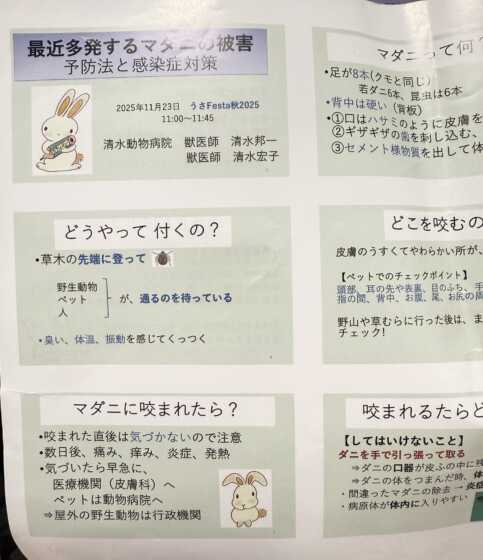 最近多発するマダニの被害
予防法と感染症対策
2025年11月23日 うさFesta秋2025
11:00～11:45
清水動物病院 獣医師 清水邦一
獣医師 清水宏子
マダニって何?
•足が8本(クモと同じ)
若ダニ6本、昆虫は6本
•背中は硬い(背板)
•①口はハサミのように皮膚を
②ギザギザの歯を刺し込む、
③セメント様物質を出して体
どうやって 付くの？
•草木の先端に登って
野生動物
ペット が、通るのを待っている
人
•臭い、体温、振動を感じてくっつく
どこを咬むの
皮膚のうすくてやわらかい所が、
【ペットでのチェックポイント】
頭部、耳の先や表裏、目のふち、手
指の間、背中、お腹、尾、お尻の周
野山や草むらに行った後は、ま
チェック!
マダニに咬まれたら？
•咬まれた直後は気づかないので注意
•数日後、痛み、痒み、炎症、発熱
•気づいたら早急に、
医療機関（皮膚科）へ
ペットは動物病院へ
⇒屋外の野生動物は行政機関
咬まれるたらど
【してはいけないこと】
ダニを手で引っ張って取る
⇒ダニの口器が皮ふの中に残
⇒ダニの体をつまんだ時、体
・間違ったマダニの除去 → 炎症
・病原体が体内に入りやすい